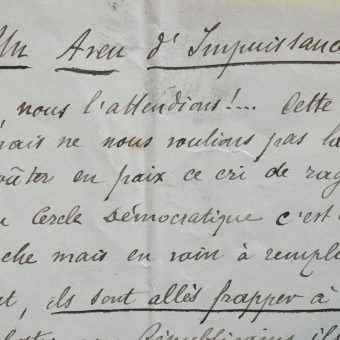 Un Aveu d'Impuissanc
, nous l'attendions!... Cette
mais ne nous voulions pas la
oûter en paix ce cri de rag
u Cercle Démocratique c'est
che mais en vain à rempli
t, ils sont allés frapper à
Républicains il